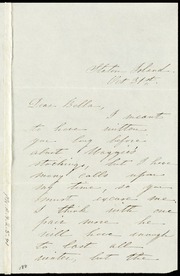 Staten Island.
Oct 31st.
Dear Bella,
I meant
to have written
you long before
about Maggie's
stockings, but I have
many calls upon
my time, so you
must excuse me
I think with one
pair more he
will have enough
to last all
winter, but the